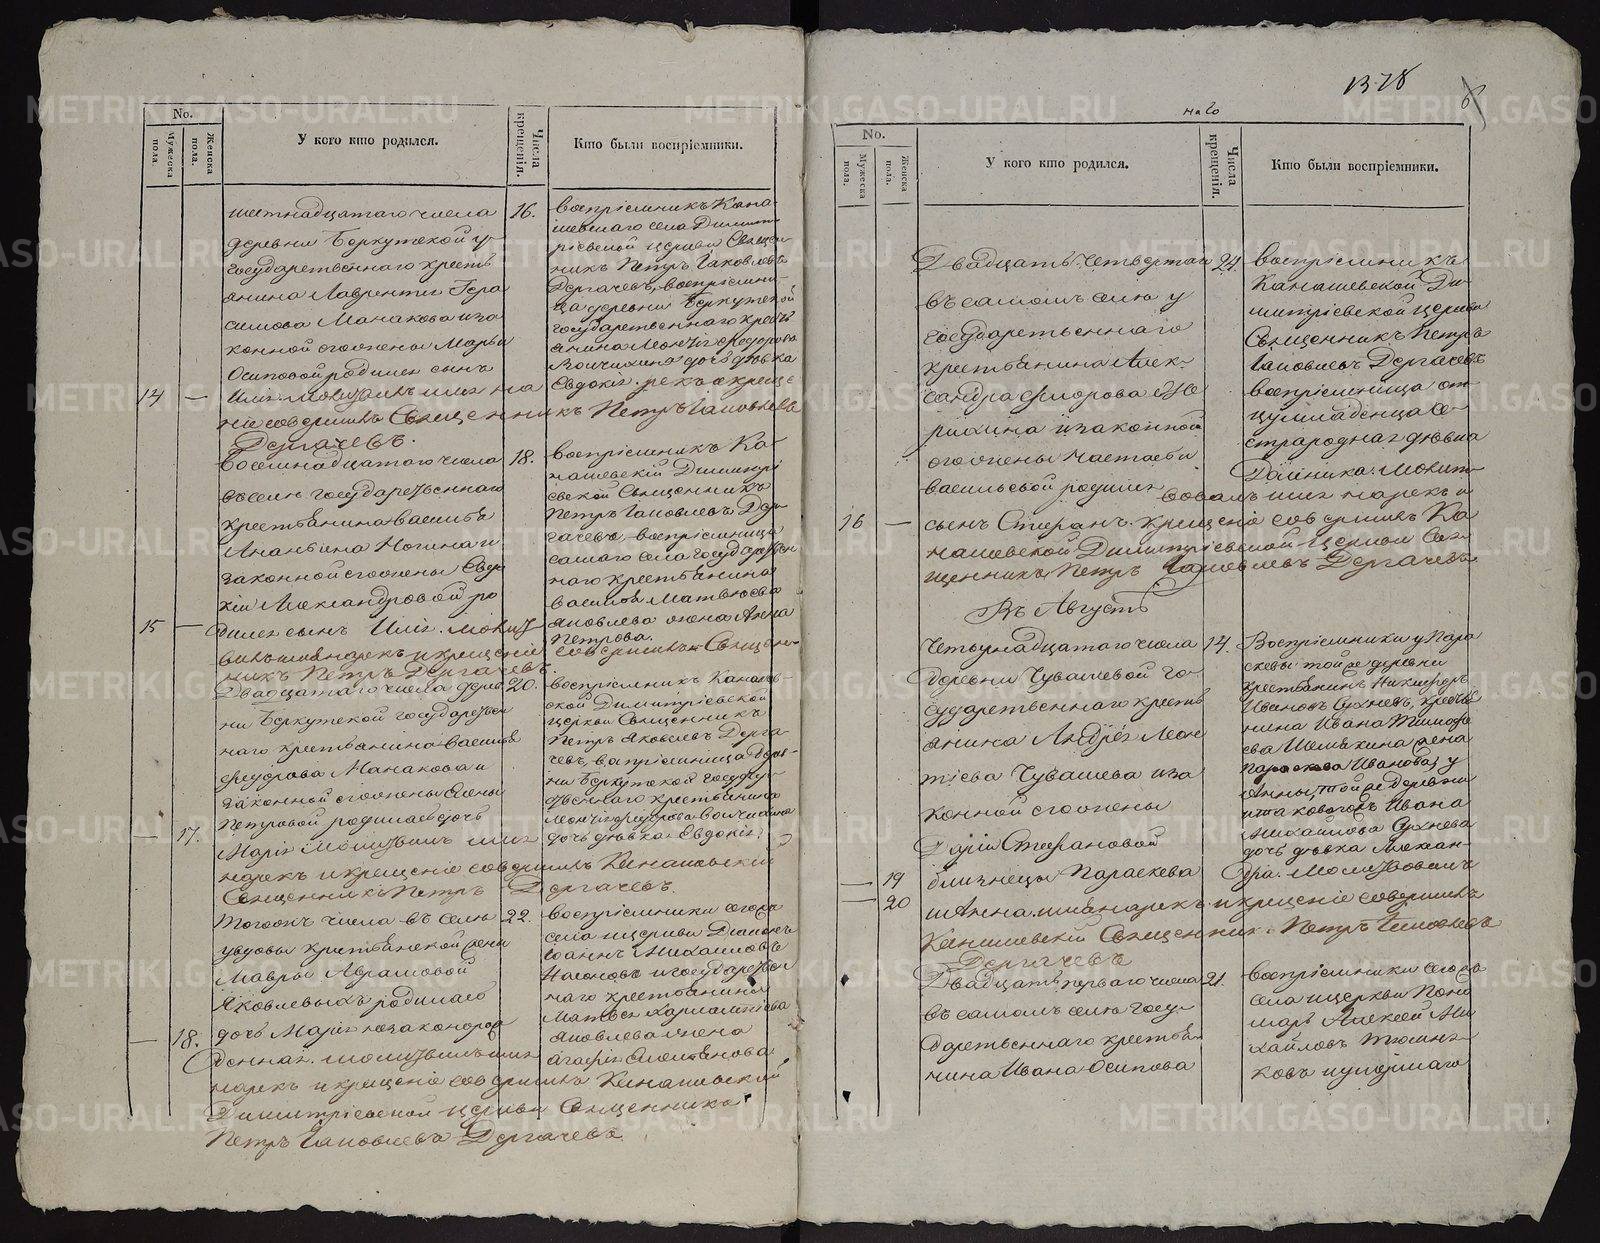 No.
Мужеска пола.
Женска пола.
У кого кто родился.
Числа крещенія.
Кто были воспріемники.
шестнадцатаго числа
деревни Беркутской у
государственнаго кресть
янина Лаврентія Гера
симова Манакова и за
конной его жены Марьи
Осиповой родился сынъ
14 — Илія молитвилъ имя на
16.
воспріемникъ Кана
шевскаго села Димит
ріевской церкви Священ
никъ Петръ Іаковлевъ
Дергачевъ, воспріемни
ца деревни Беркутской
государственнаго кресть
янина Леонтія Федорова
дочь дѣвка
Евдокія. рекъ и креще
ніе совершилъ Священникъ Петръ Іаковлевъ
Дергачевъ.
Восемнадцатаго числа
въ селѣ государственнаго
крестьянина Василья
Ананьина Ногина и
законной его жены Евдо
кіи Александровой ро
15 — дился сынъ Илія. молит
18.
воспріемникъ Ка
нашевскій Димитрі
евской Священникъ
Петръ Іаковлевъ Дер
гачевъ, воспріемница
самаго села государствен
наго крестьянина
Василья Матвѣева
Яковлева жена Анна
Петрова.
вилъ имя нарекъ и крещеніе совершилъ Священ
никъ Петръ Дергачевъ.
Двадцатаго числа дерев
ни Беркутской государствен
наго крестьянина Василья
Федорова Манакова и
законной его жены Елены
Петровой родилась дочь
— 17. Марія молитвилъ имя
20.
воспріемникъ Канашев
ской Димитріевской
церкви Священникъ
Петръ Яковлевъ Дерга
чевъ, воспріемница дерев
ни Беркутской государ
ственнаго крестьянина
Леонтія Федорова
дочь дѣвка Евдокія
нарекъ и крещеніе совершилъ Канашевскій
Священникъ Петръ Дергачевъ.
Тогожъ числа въ селѣ
у вдовы крестьянской жены
Мавры Аврамовой
Яковлевыхъ родилась
дочь Марія незаконорож
— 18. денная. молитвилъ имя
22.
воспріемники сегожъ
села и церкви Діаконъ
Іоаннъ Михаиловъ
и государствен
наго крестьянина
Матвея Харлампіева
Яковлева жена
Агафія Емельянова
нарекъ и крещеніе совершилъ Канашевской
Димитріевской церкви Священникъ
Петръ Іаковлевъ Дергачевъ
1378
6
наго
No.
Мужеска пола.
Женска пола.
У кого кто родился.
Числа крещенія.
Кто были воспріемники.
Двадцать четвертаго
въ самомъ селѣ у
государственнаго
крестьянина Алек
сандра Федорова
и законной
его жены Настасьи
Васильевой родился
24.
воспріемникъ
Канашевской Ди
митріевской церкви
Священникъ Петръ
Іаковлевъ Дергачевъ
воспріемница от
цу младенца се
стра родная дѣвка
Домника. Молит
вовалъ имя нарекъ и
16 — сынъ Стефанъ. крещеніе совершилъ Ка
нашевской Димитріевской церкви Свя
щенникъ Петръ Іаковлевъ Дергачевъ
Въ Августѣ
Четырнадцатаго числа
деревни Чувашевой го
сударственнаго кресть
янина Андрея Леон
тіева Чувашева и за
конной его жены
Даріи Стефановой
— 19 близнецы Параскева
14.
Воспріемники у Пара
скевы той же деревни
крестьянинъ Никифоръ
Ивановъ Сухневъ, кресть
нина Ивана Тимофе
ева Шемякина жена
Параскева Иванова, у
Анны той же деревни
Ивана
Михайлова Сухнева
дочь дѣвка Алексан
дра. Молитвовалъ
— 20 и Анна. имя нарекъ и крещеніе совершилъ
Канашевскій Священникъ Петръ Іаковлевъ
Дергачевъ
Двадцать перваго числа
въ самомъ селѣ госу
дарственнаго крестья
нина Ивана Осипова
21.
воспріемники сегожъ
села и церкви Поно
марь Алексей Ми
хайловъ Тюшня
ковъ и умершаго